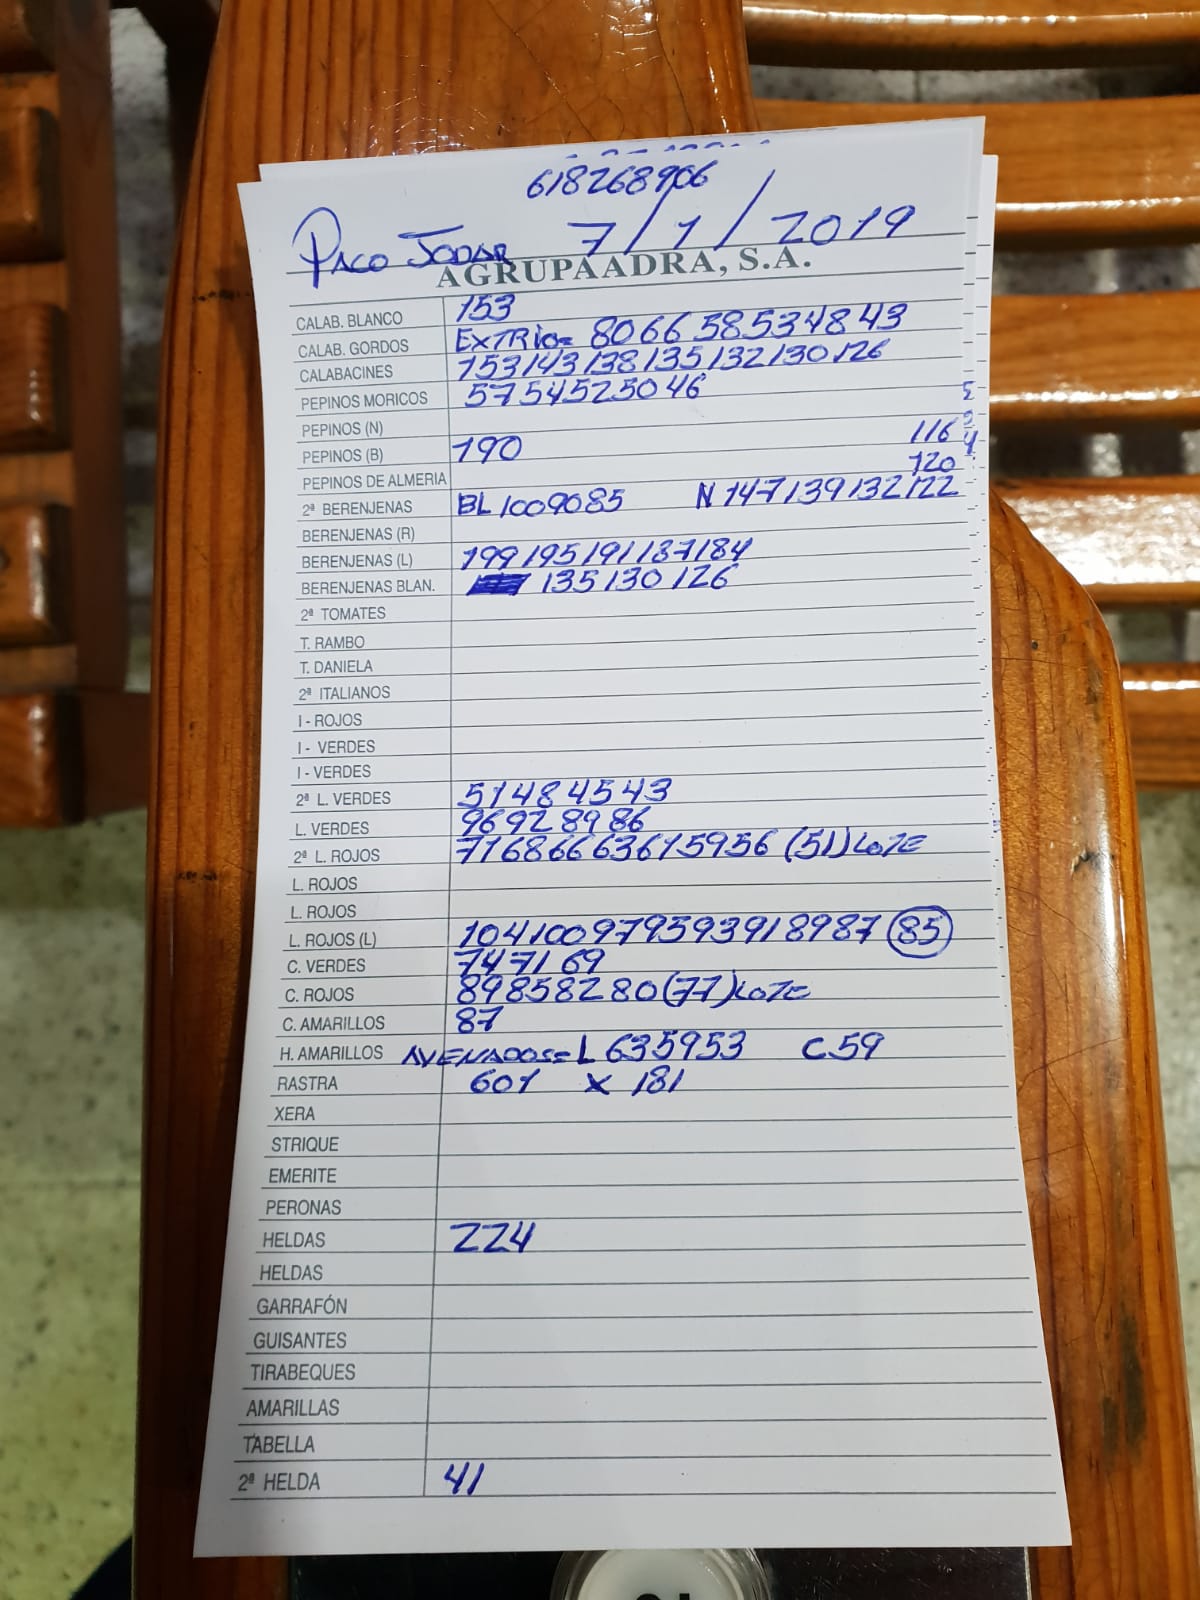 618268906
PACO JODAR 7/1/2019
AGRUPAADRA, S.A.
CALAB. BLANCO 153
CALAB. GORDOS EXTRIO= 80 66 58 53 48 43
CALABACINES 153 143 138 135 132 130 126
PEPINOS MORICOS 57 54 52 50 46
PEPINOS (N)
PEPINOS (B) 190 116
PEPINOS DE ALMERIA 120
2ª BERENJENAS BL 100 90 85 N 147 139 132 122
BERENJENAS (R)
BERENJENAS (L) 199 195 191 187 184
BERENJENAS BLAN. 135 130 126
2ª TOMATES
T. RAMBO
T. DANIELA
2ª ITALIANOS
I - ROJOS
I - VERDES
I - VERDES
2ª L. VERDES 51 48 45 43
L. VERDES 96 92 89 86
2ª L. ROJOS 71 68 66 63 61 59 56 (51) LOTE
L. ROJOS
L. ROJOS
L. ROJOS (L) 104 100 97 95 93 91 89 87 85
C. VERDES 74 71 69
C. ROJOS 89 85 82 80 (77) LOTE
C. AMARILLOS 87
H. AMARILLOS AVENADOS= L 63 59 53 C 59
RASTRA 601 X 181
XERA
STRIQUE
EMERITE
PERONAS
HELDAS 224
HELDAS
GARRAFÓN
GUISANTES
TIRABEQUES
AMARILLAS
TABELLA
2ª HELDA 41